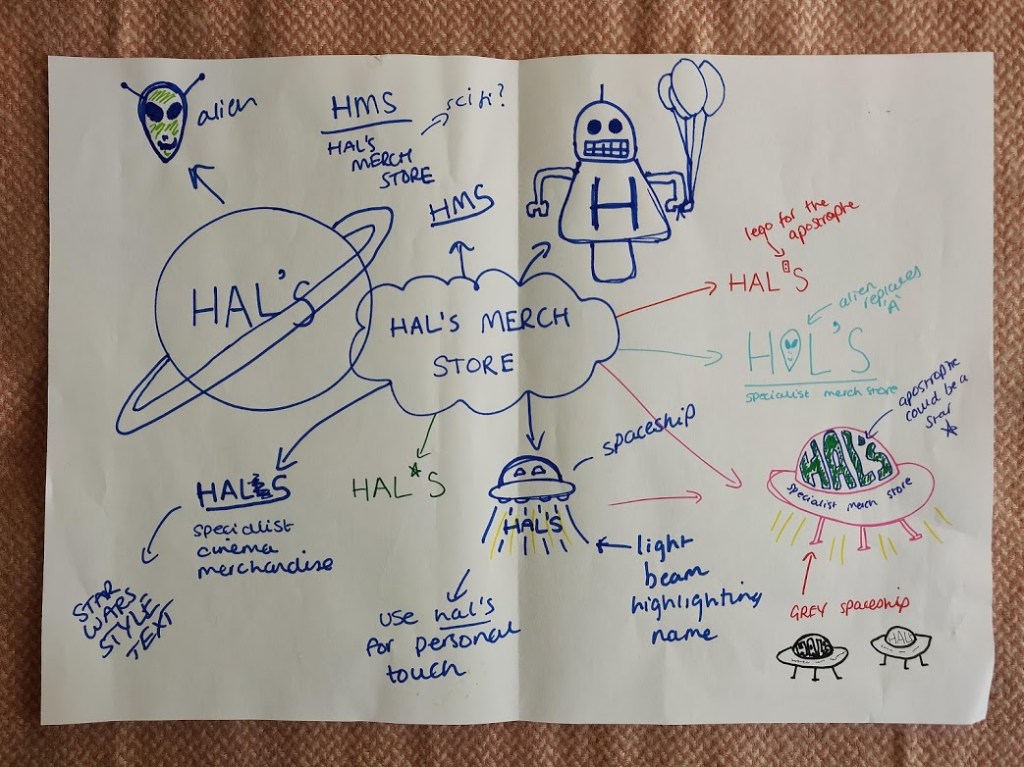 alien
HMS
HAL'S
MERCH
STORE
sci fi?
HMS
H
HAL'S
HAL'S MERCH
STORE
lego for the
apostrophe
HAL'S
alien
replaces
'A'
H L'S
specialist merch store
apostrophe
could be a
star
HAL'S
specialist merch store
HAL'S
specialist
cinema
merchandise
STAR
WARS
STYLE
TEXT
HAL*S
spaceship
HAL'S
light
beam
highlighting
name
use hal's
for personal
touch
GREY spaceship